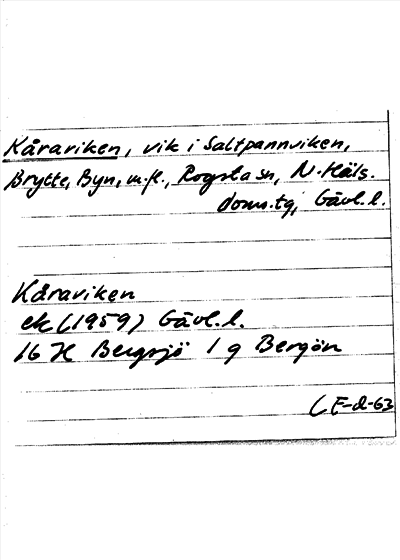 Kåraviken, vik i Saltpannviken,
Brytte, Byn, m.fl., Rogsta sn, N. Häls.
doms.tg, Gävl.l.
Kåraviken
ek (1959) Gävl.l.
16 H Bergsjö 1 g Bergön
LE-d-63